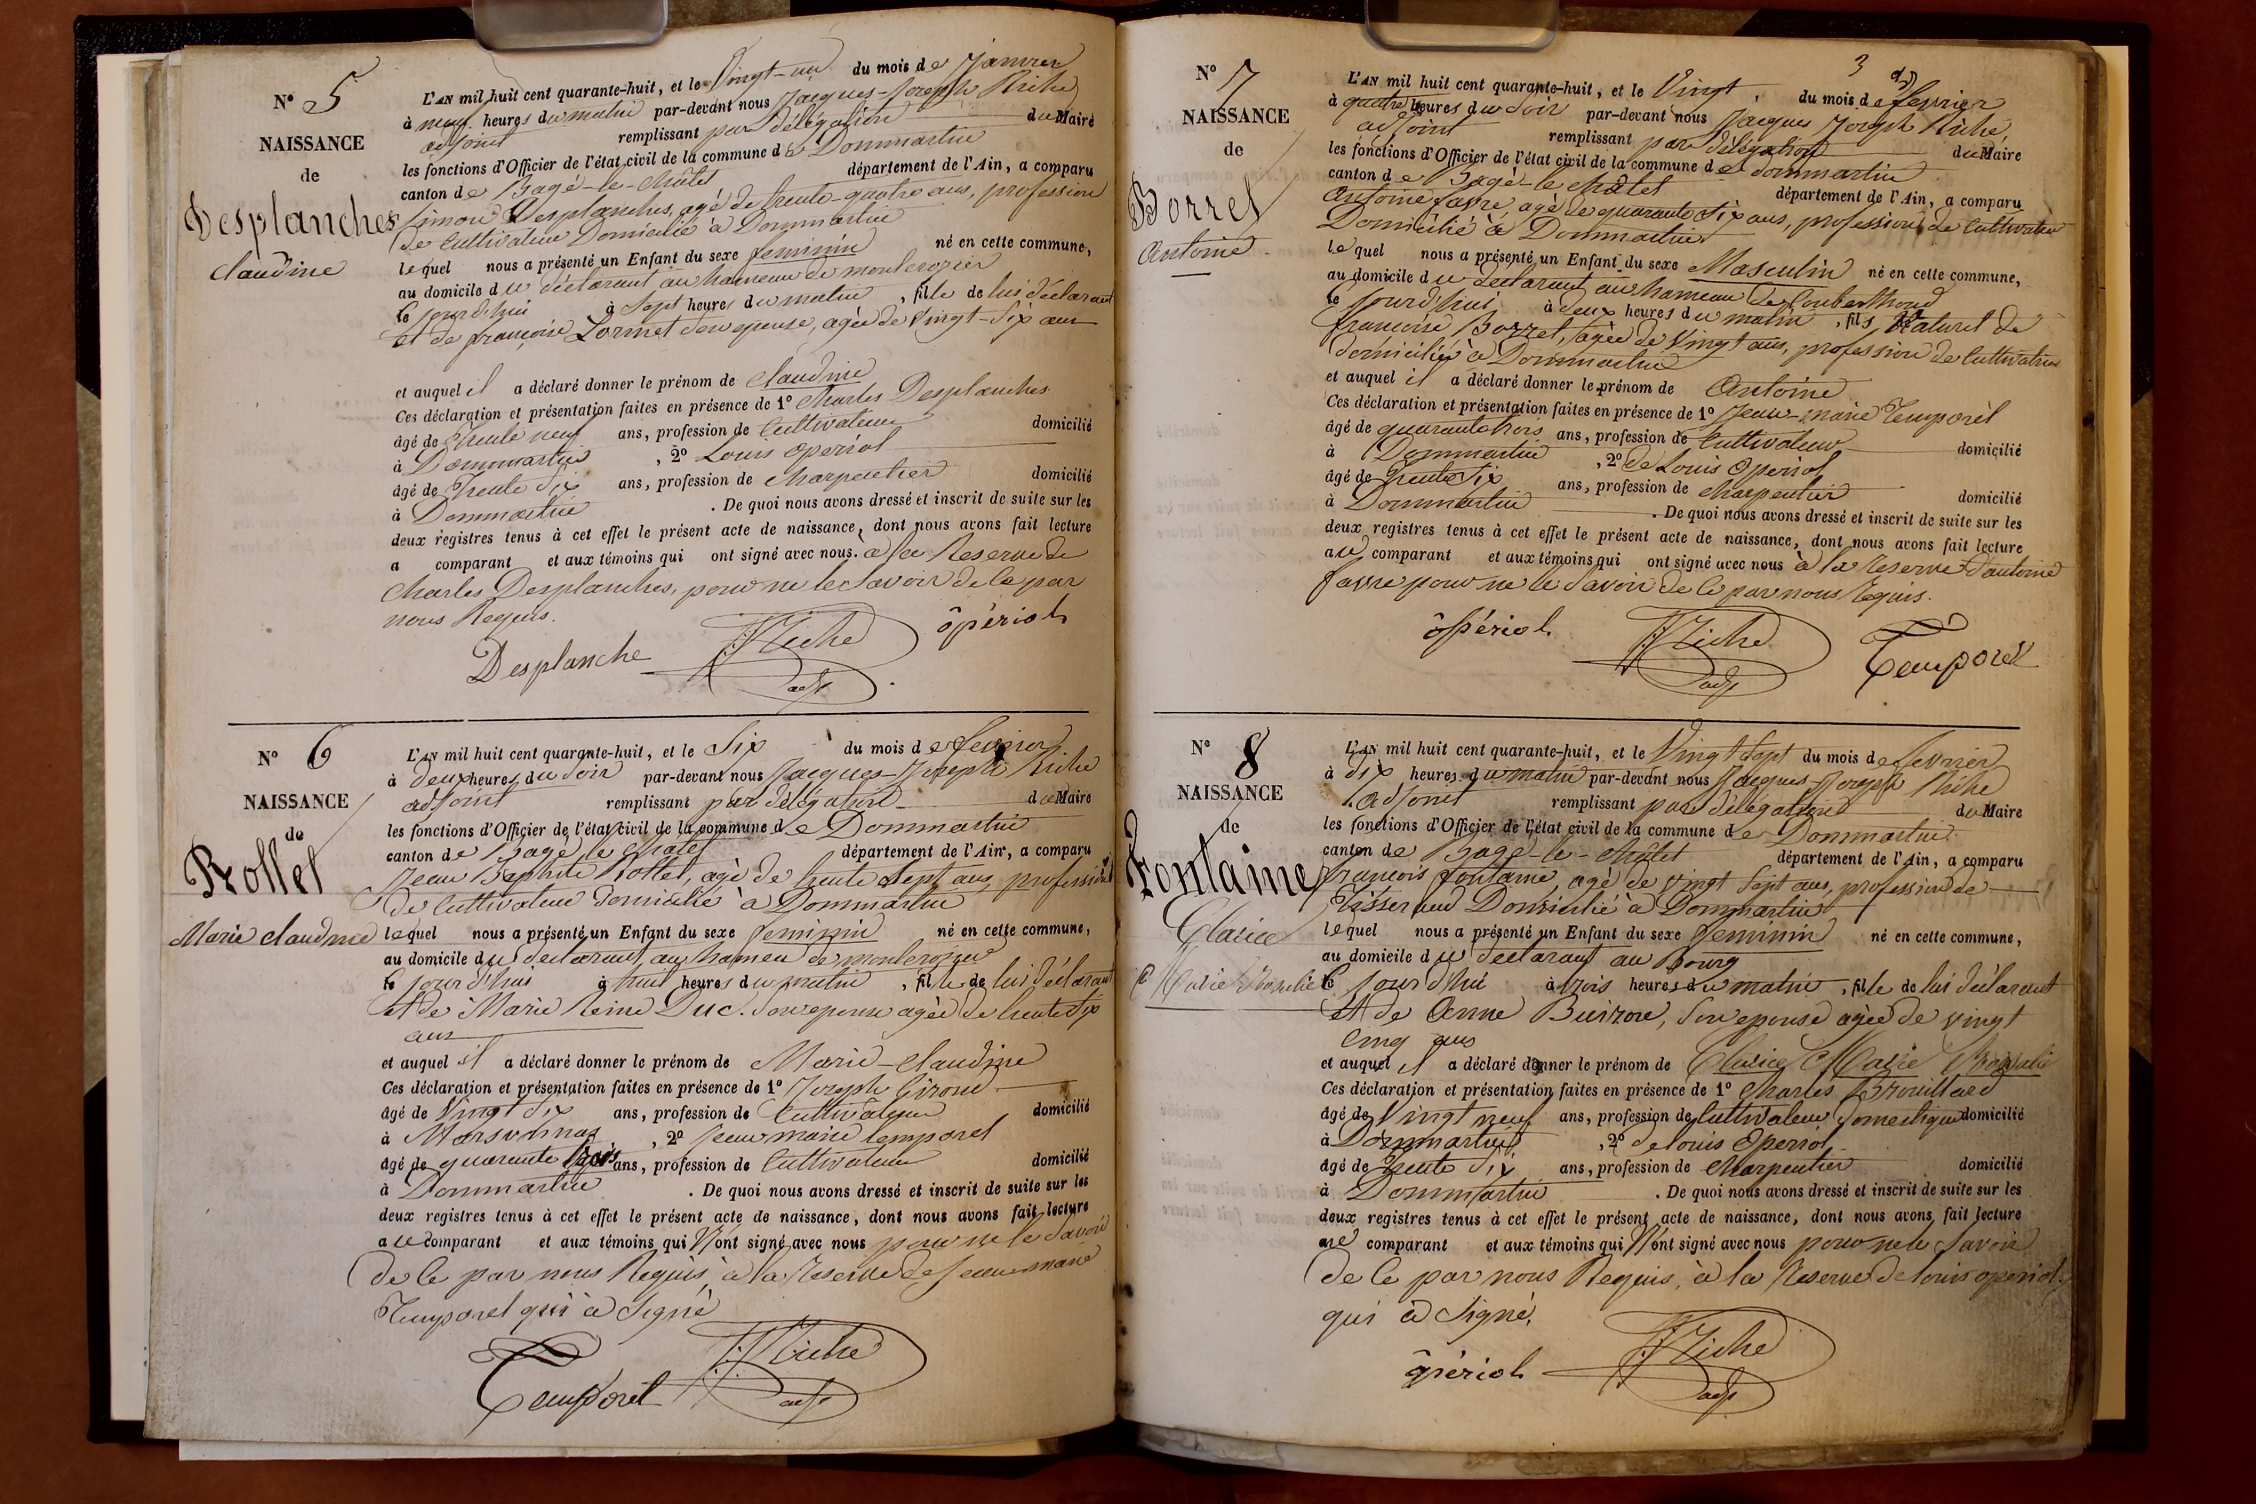 N° 5
NAISSANCE
de
Desplanches
Claudine
L'AN mil huit cent quarante-huit, et le Vingt-un du mois de Janvier
à neuf heures du matin par-devant nous Jacques-Joseph Riche
adjoint remplissant par délégation du Maire
les fonctions d'Officier de l'état civil de la commune de Dommartin
canton de Bagé-le-Châtel département de l'Ain, a comparu
Simon Desplanches, agé de trente-quatre ans, profession
de Cultivateur Domicilié à Dommartin
lequel nous a présenté un Enfant du sexe feminin né en cette commune,
au domicile du déclarant au hameau de montcrozier
le jourd'hui à Sept heures du matin, fille de lui déclarant
et de françoise Lormet son epouse, agée de Vingt-Six ans
et auquel il a déclaré donner le prénom de Claudine
Ces déclaration et présentation faites en présence de 1° Charles Desplanches
âgé de Trente neuf ans, profession de Cultivateur domicilié
à Dommartin, 2° Louis Operiol
âgé de Trente Six ans, profession de Charpentier domicilié
à Dommartin. De quoi nous avons dressé et inscrit de suite sur les
deux registres tenus à cet effet le présent acte de naissance, dont nous avons fait lecture
a comparant et aux témoins qui ont signé avec nous. à la Reserve de
Charles Desplanches, pour ne le Savoir de ce par
nous Requis.
Desplanche JJ Riche adjt ôpériol
N° 6
NAISSANCE
de
Rollet
Marie Claudine
L'AN mil huit cent quarante-huit, et le Six du mois de fevrier
à deux heures du Soir par-devant nous Jacques-Joseph Riche
adjoint remplissant par délégation du Maire
les fonctions d'Officier de l'état civil de la commune de Dommartin
canton de Bagé le Chatel département de l'Ain, a comparu
Jean Baptiste Rollet, agé de trente Sept ans, profession
de Cultivateur domicilié à Dommartin
lequel nous a présenté un Enfant du sexe feminin né en cette commune,
au domicile du déclarant, au hameau de montcrozier
le jourd'hui à huit heures du matin, fille de lui déclarant
et de Marie Reine Duc. Son epouse agée de trente Six
ans
et auquel il a déclaré donner le prénom de Marie-Claudine
Ces déclaration et présentation faites en présence de 1° Joseph Giroud
âgé de Vingt Six ans, profession de Cultivateur domicilié
à Marsonnas, 2° Jean marie temporel
âgé de quarante trois ans, profession de Cultivateur domicilié
à Dommartin. De quoi nous avons dressé et inscrit de suite sur les
deux registres tenus à cet effet le présent acte de naissance, dont nous avons fait lecture
au comparant et aux témoins qui N'ont signé avec nous pour ne le Savoir
de ce par nous Requis, à la Reserve de Jean marie
Temporel qui à Signé
Temporel JJ Riche adjt
3
N° 7
NAISSANCE
de
Borret
Antoine
L'AN mil huit cent quarante-huit, et le Vingt du mois de fevrier
à quatre heures du Soir par-devant nous Jacques Joseph Riche
adjoint remplissant par délégation du Maire
les fonctions d'Officier de l'état civil de la commune de Dommartin
canton de Bagé-le Châtel département de l'Ain, a comparu
Antoine favre agé de quarante Six ans, profession de Cultivateur
Domicilié à Dommartin
lequel nous a présenté un Enfant du sexe Masculin né en cette commune,
au domicile du déclarant au hameau de Couberthoud
le jourd'hui à deux heures du matin, fils Naturel de
françoise Borret, agée de Vingt ans, profession de Cultivatrice
domiciliée à Dommartin
et auquel il a déclaré donner le prénom de Antoine
Ces déclaration et présentation faites en présence de 1° Jean-marie Temporel
âgé de quarante trois ans, profession de Cultivateur domicilié
à Dommartin, 2° de Louis Operiol
âgé de trente Six ans, profession de Charpentier domicilié
à Dommartin. De quoi nous avons dressé et inscrit de suite sur les
deux registres tenus à cet effet le présent acte de naissance, dont nous avons fait lecture
au comparant et aux témoins qui ont signé avec nous à la Reserve d'antoine
favre pour ne le Savoir de ce par nous Requis.
ôpériol JJ Riche adjt Temporel
N° 8
NAISSANCE
de
Fontaine
Clarice
Marie
L'AN mil huit cent quarante-huit, et le Vingt Sept du mois de fevrier
à dix heures du matin par-devant nous Jacques-Joseph Riche
adjoint remplissant par délégation du Maire
les fonctions d'Officier de l'état civil de la commune de Dommartin
canton de Bagé-le-Châtel département de l'Ain, a comparu
françois fontaine, agé de vingt Sept ans, profession de
Tisserand Domicilié à Dommartin
lequel nous a présenté un Enfant du sexe feminin né en cette commune,
au domicile du déclarant au Bourg
le jourd'hui à trois heures du matin, fille de lui déclarant
et de Anne Buizon, Son epouse agée de vingt
Cinq ans
et auquel il a déclaré donner le prénom de Clarice Marie
Ces déclaration et présentation faites en présence de 1° Charles Brouillard
âgé de Vingt neuf ans, profession de Cultivateur domestique domicilié
à Dommartin, 2° de louis Operiol
âgé de Trente Six ans, profession de Charpentier domicilié
à Dommartin. De quoi nous avons dressé et inscrit de suite sur les
deux registres tenus à cet effet le présent acte de naissance, dont nous avons fait lecture
au comparant et aux témoins qui N'ont signé avec nous pour ne le Savoir
de ce par nous Requis, à la Reserve de louis operiol
qui à Signé,
ôpériol JJ Riche adjt